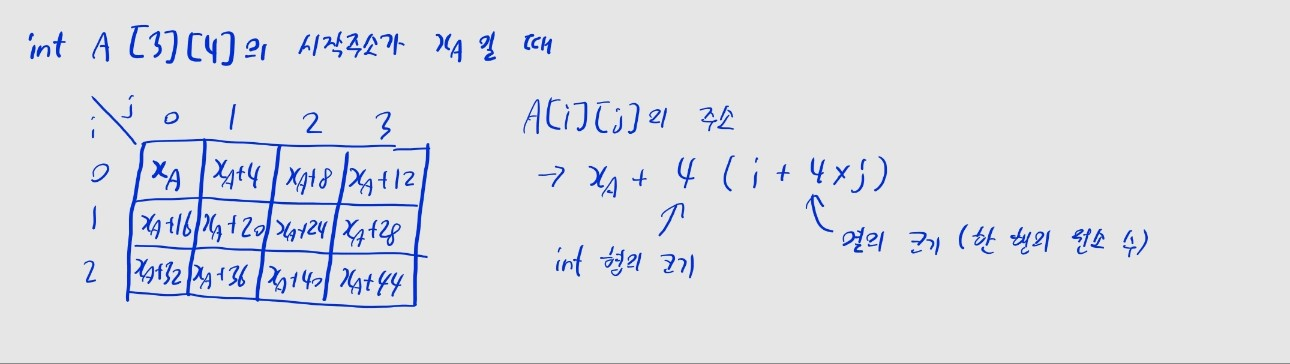 int A [3][4]의 시작주소가 xA 일 때
j
i
0 1 2 3
0 xA xA+4 xA+8 xA+12
1 xA+16 xA+20 xA+24 xA+28
2 xA+32 xA+36 xA+40 xA+44
A[i][j]의 주소
→ xA + 4 ( i + 4×j)
int 형의 크기
열의 크기 (한 행의 원소 수)